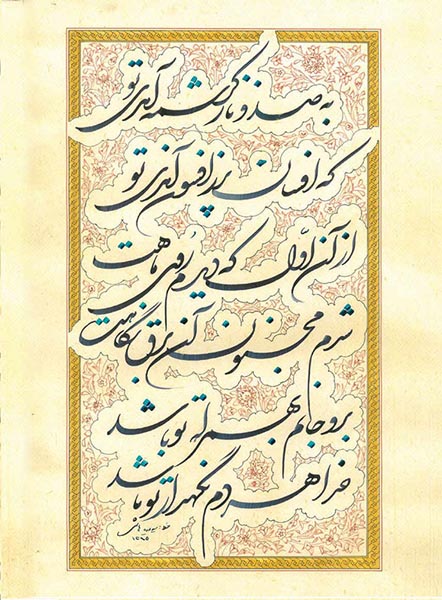 به صد ناز و کرشمه آمدی تو
که افسان پر ز افسون آمدی تو
از آن اول که دیدم روی ماهت
شدم مجنون آن برق نگاهت
برو جانم بهم راه تو باشد
خدا هر دم نگهدار تو باشد